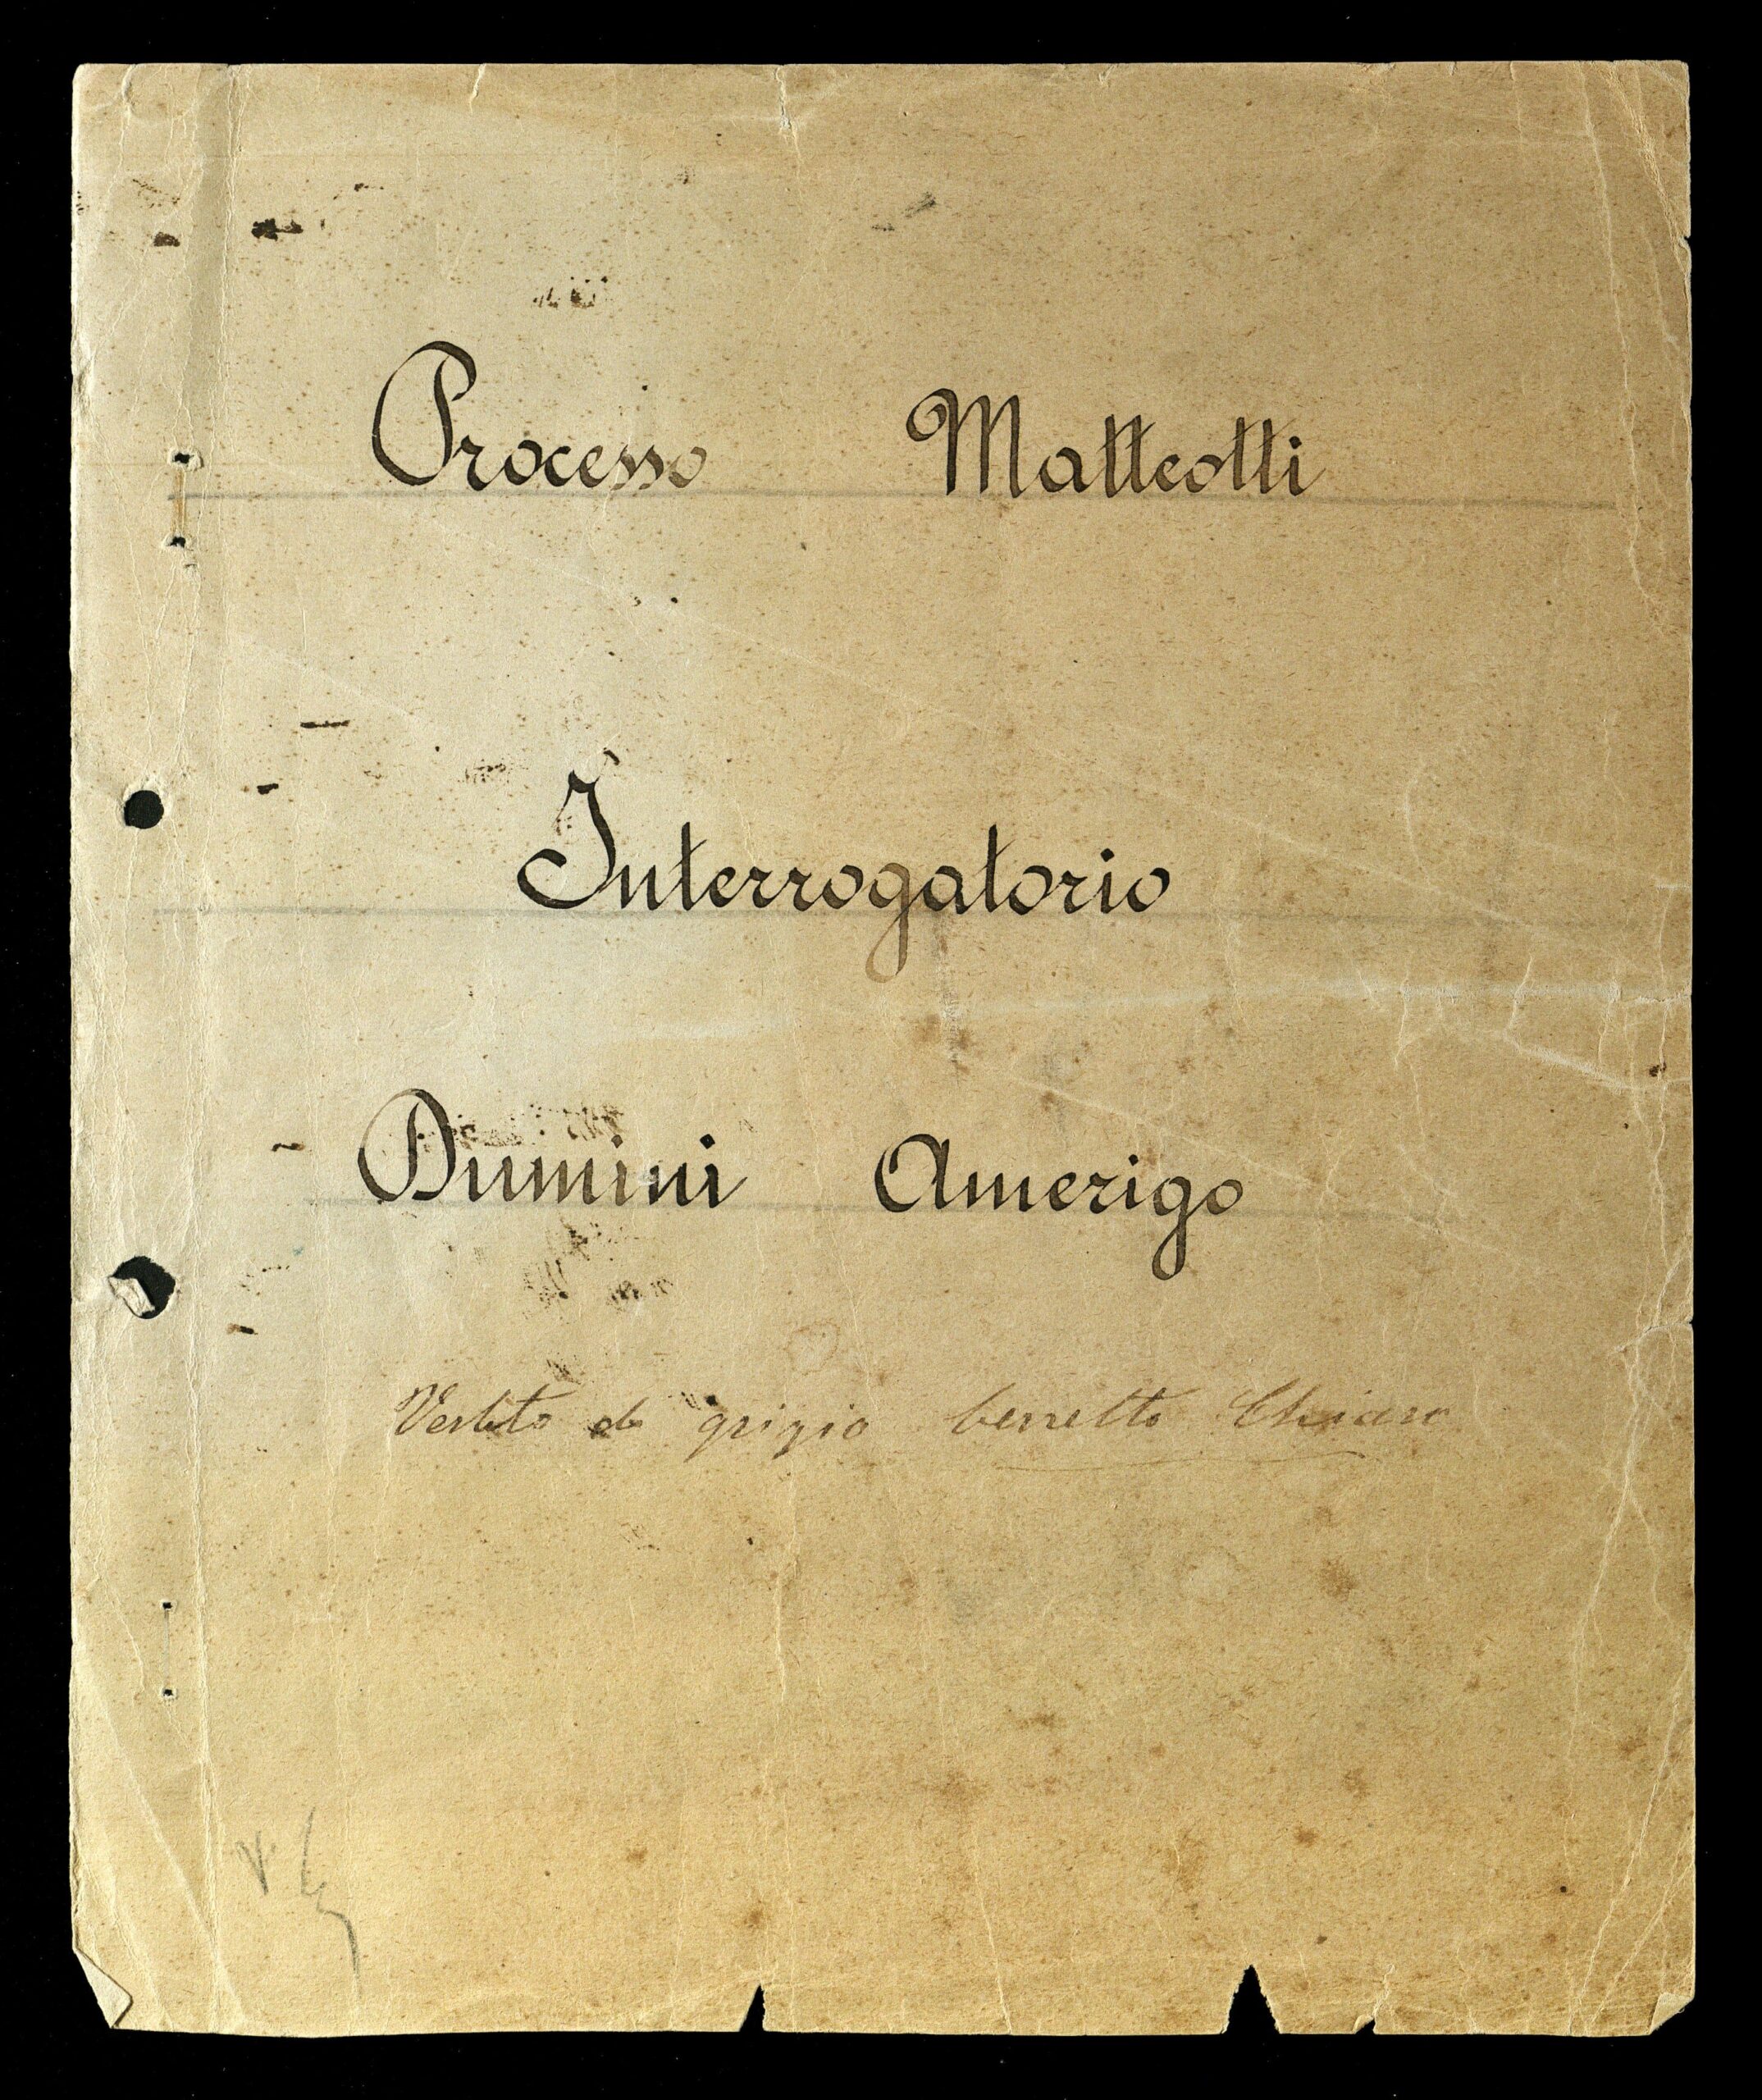 Processo Matteotti
Interrogatorio
Dumini Amerigo
Vestito di grigio berretto Chiaro